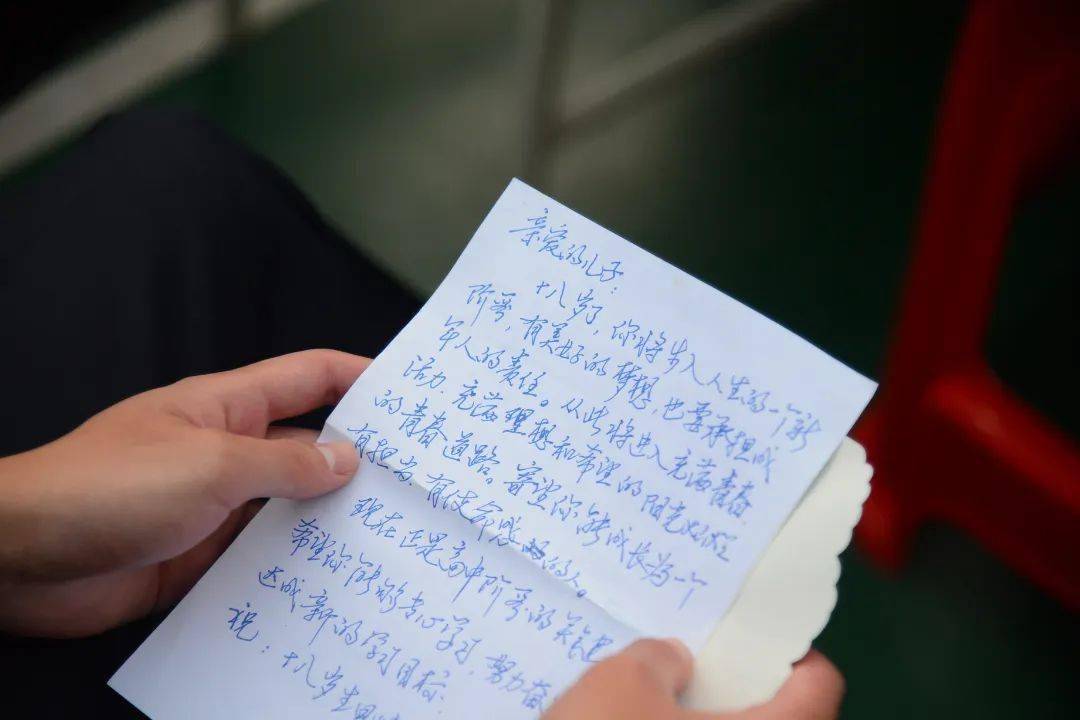 亲爱的儿子:
十八岁了,你将步入人生的一个新
阶段,有美好的梦想,也要承担成
年人的责任。从此将进入充满青春
活力、充满理想和希望的阳光
的青春道路。希望你能成长为一个
有担当、有使命感的人。
现在正是高中阶段的关键
希望你能够专心学习,努力奋
达成新的学习目标.
祝:十八岁生